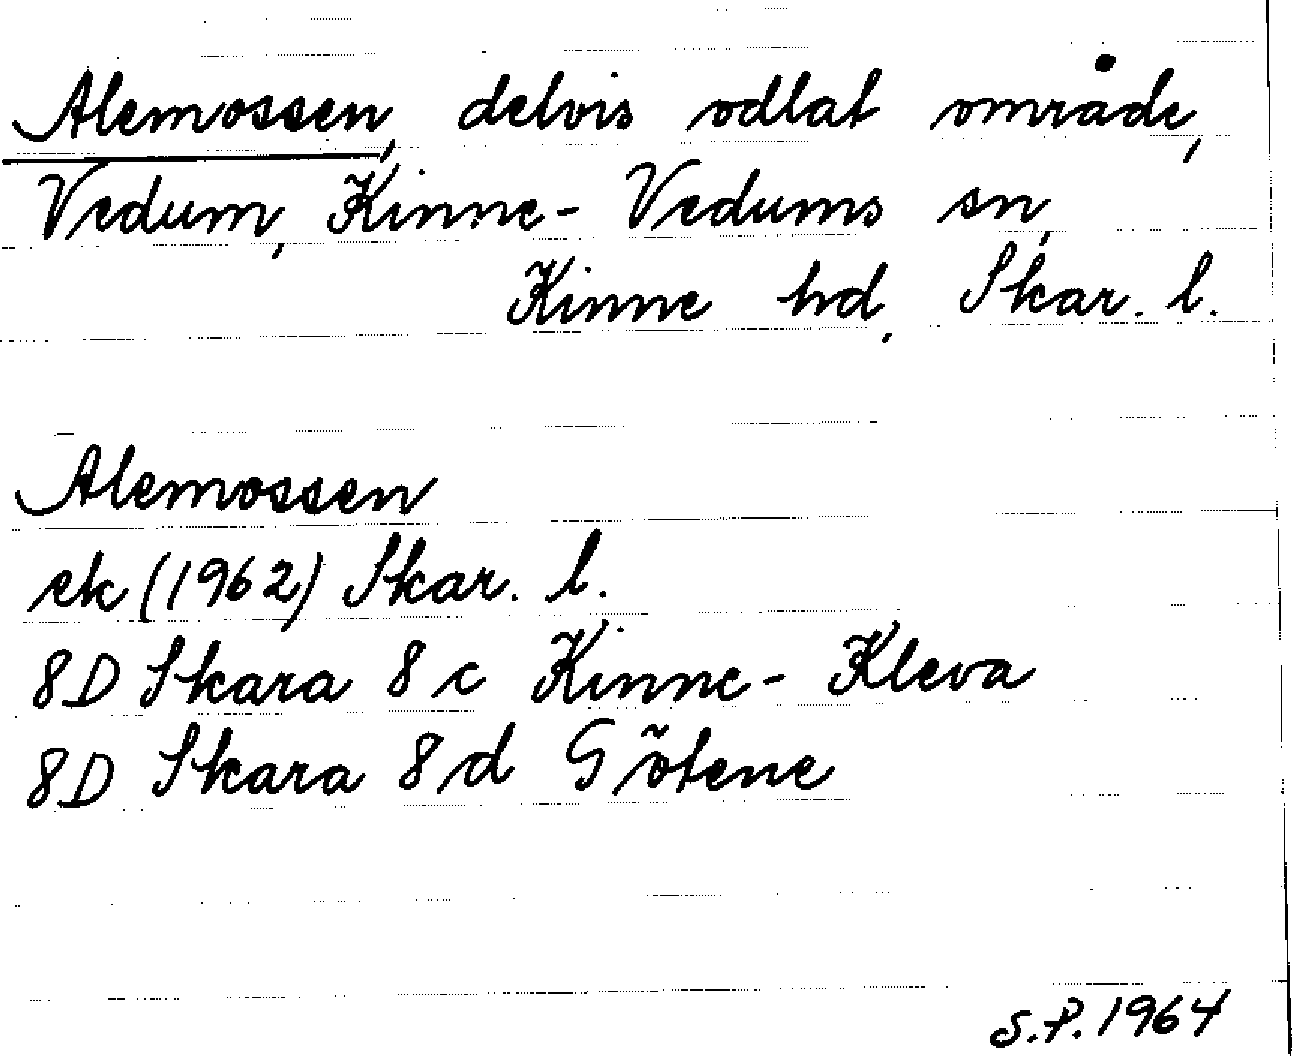 Alemossen, delvis odlat område,
Vedum, Kinne-Vedums sn,
Kinne hd, Skar. l.
Alemossen
ek (1962) Skar. l.
8D Skara 8 c Kinne-Kleva
8D Skara 8 d Götene
S.P. 1964